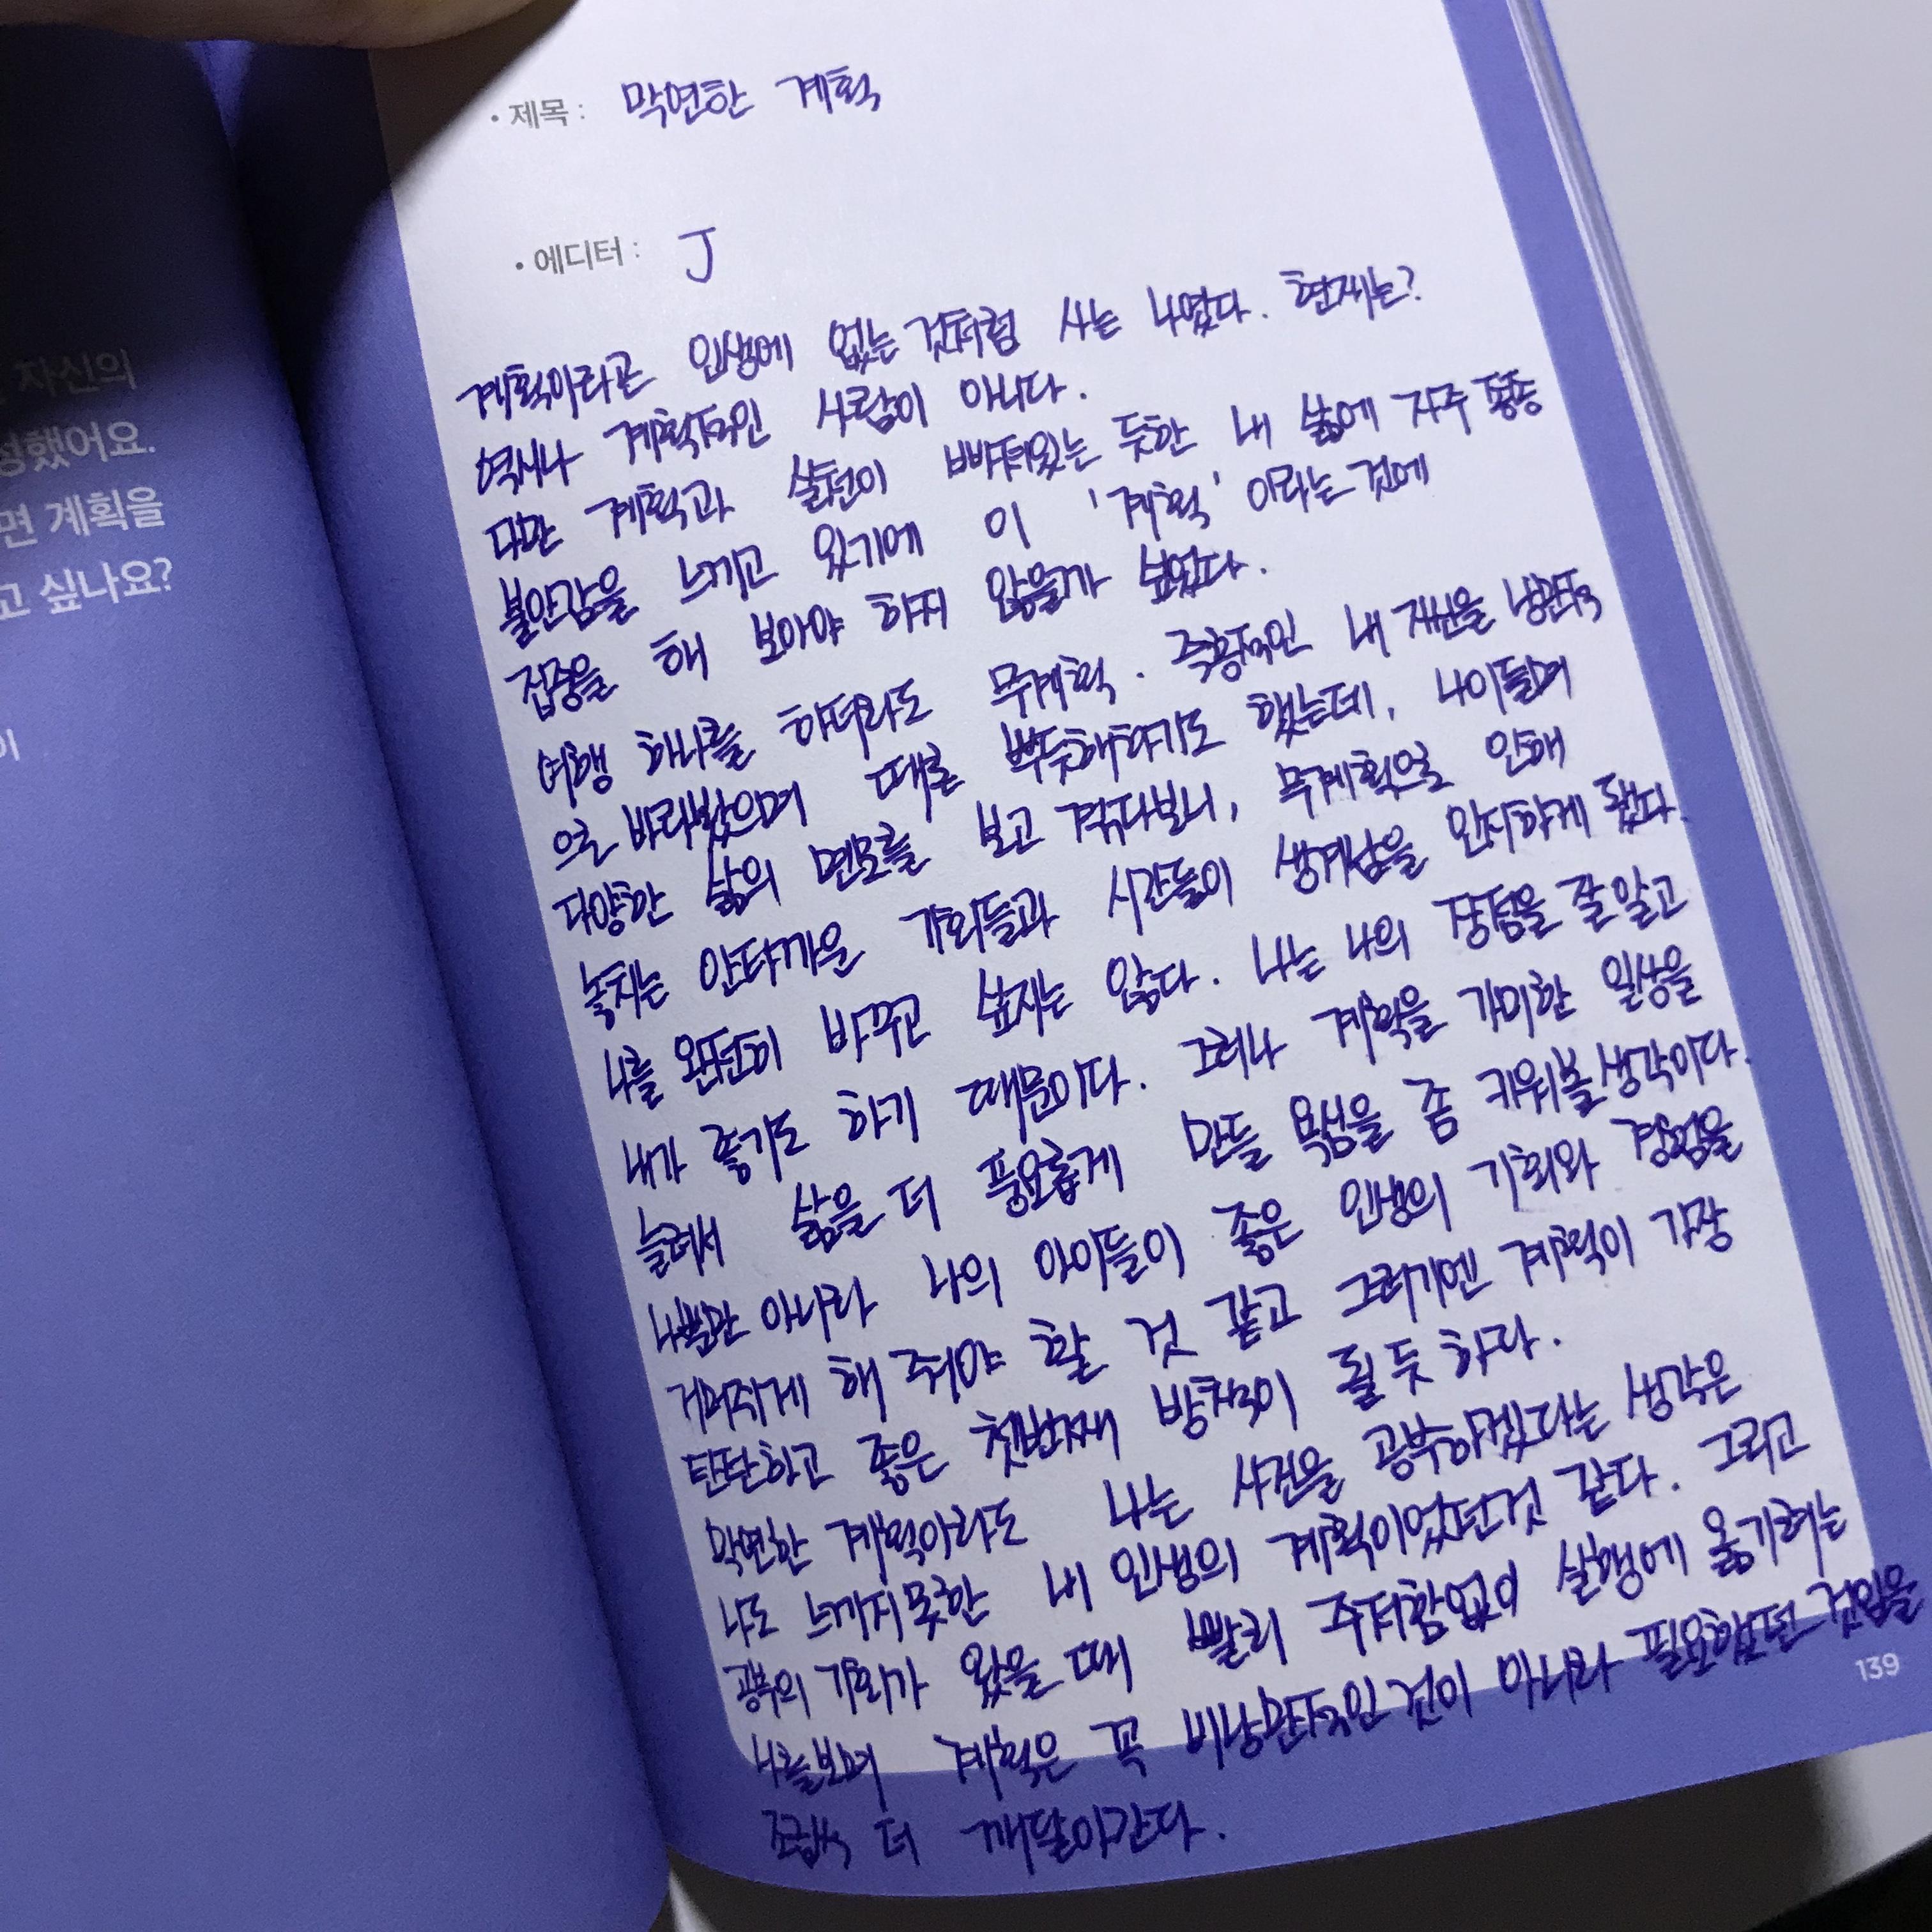 자신의
정했어요.
면 계획을
고 싶나요?
이
• 제목 : 막연한 계획
• 에디터 : J
계획이라곤 인생에 없는 것처럼 사는 나였다. 현재는?
역시나 계획적인 사람이 아니다.
다만 계획과 실천이 빠져있는 듯한 내 삶에 자주 종종
불안감을 느끼고 있기에 이 '계획' 이라는 것에
집중을 해 보아야 하지 않을까 싶었다.
여행 하나를 하더라도 무계획. 즉흥적인 내 자신을 낭만적
으로 바라봤으며 때로 뿌듯해하기도 했는데, 나이들며
다양한 삶의 면모를 보고 겪다보니, 무계획으로 인해
놓치는 안타까운 기회들과 시간들이 생겨남을 인지하게 됐다.
나를 완전히 바꾸고 싶지는 않다. 나는 나의 장점을 잘 알고
내가 좋기도 하기 때문이다. 그러나 계획을 가미한 일상을
늘려서 삶을 더 풍요롭게 만들 욕심을 좀 키워볼 생각이다.
나뿐만 아니라 나의 아이들이 좋은 인생의 기회와 경험을
거머쥐게 해 줘야 할 것 같고 그러기엔 계획이 가장
탄탄하고 좋은 첫번째 방책이 될 듯 하다.
막연한 계획이라도 나는 사건을 공부하겠다는 생각은
나도 느끼지 못한 내 인생의 계획이었던것 같다. 그리고
공부의 기회가 왔을 때 빨리 주저함없이 실행에 옮기려는
나를 보며 계획은 꼭 비낭만적인 것이 아니라 필요했던 것임을
조금씩 더 깨달아간다.
139